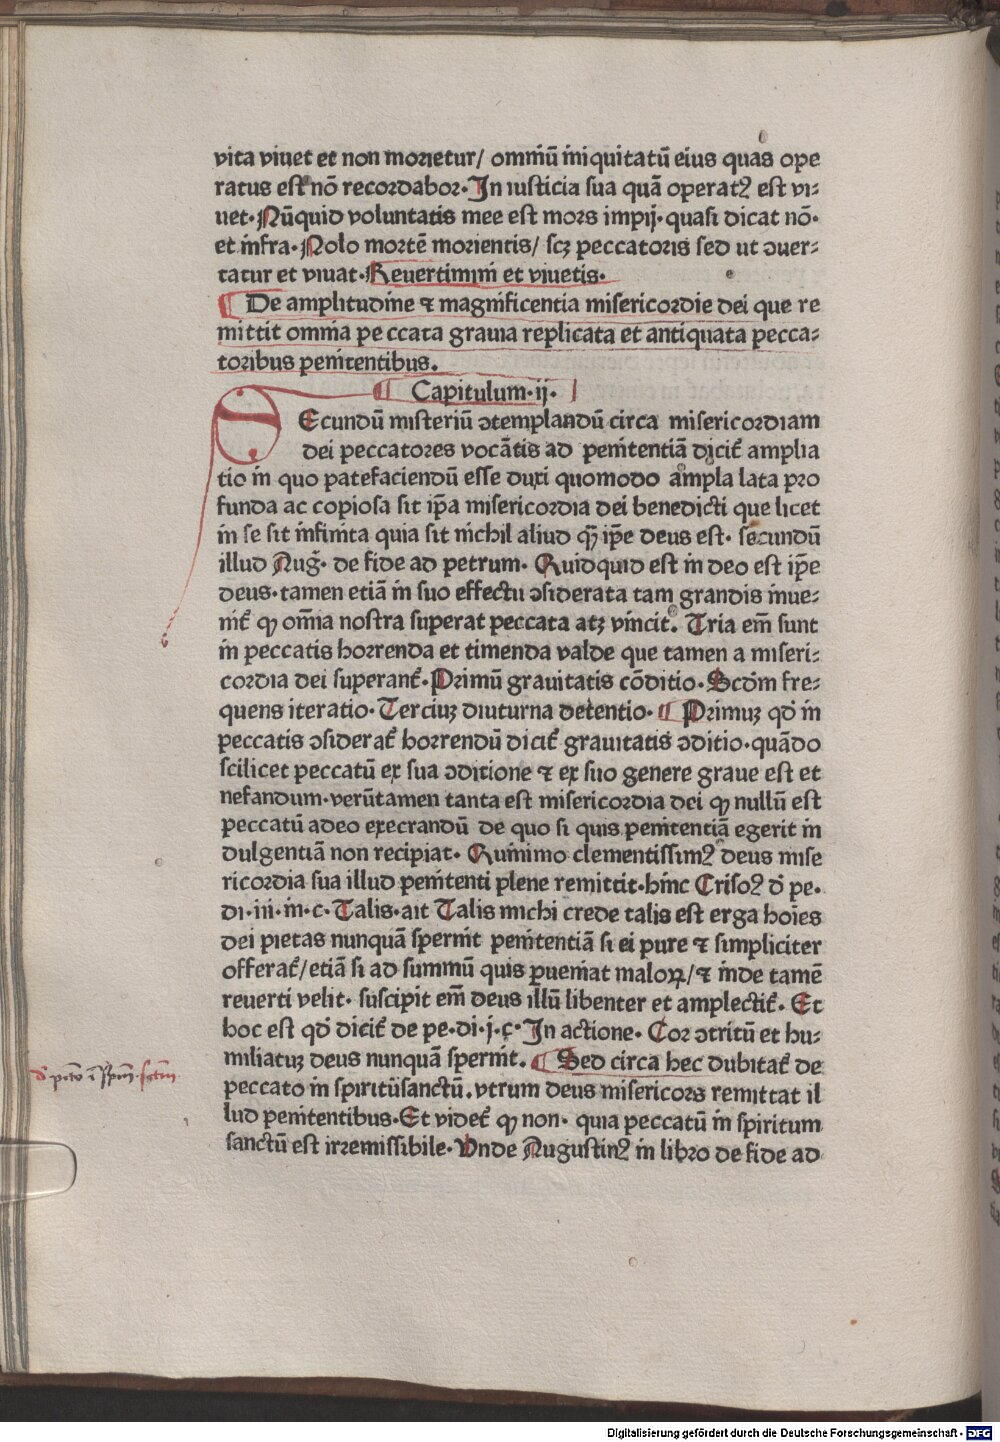 vita viuet et non morietur/ omniū iniquitatū eius quas ope
ratus est nō recordabor·In iusticia sua quā operatꝰ est vi⸗
uet·Nūquid voluntatis mee est mors impij·quasi dicat nō·
et infra·Nolo mortē morientis/ scꝫ peccatoris sed ut ꝯuer⸗
tatur et viuat·Reuertimini et viuetis·
¶ De amplitudine ⁊ magnificentia misericordie dei que re
mittit omnia pe ccata grauia replicata et antiquata pecca⸗
toribus penitentibus.
¶ Capitulum·ij·
SEcundū misteriū ꝯtemplandū circa misericordiam
dei peccatores vocātis ad penitentiā dicit᷑ amplia
tio in quo patefaciendū esse duxi quomodo ampla lata pro
funda ac copiosa sit ip̄a misericordia dei benedicti que licet
in se sit infinita quia sit nichil aliud qꝫ̄ ip̄e deus est· secundū
illud Auḡ· de fide ad petrum· Quidquid est in deo est ip̄e
deus·tamen etiā in suo effectu ꝯsiderata tam grandis inue⸗
nit᷑ ꝙ om̄ia nostra superat peccata atꝫ vincit. Tria em̄ sunt
in peccatis horrenda et timenda valde que tamen a miseri⸗
cordia dei superant᷑·Primū grauitatis cōditio·Scd̄m fre⸗
quens iteratio·Terciuꝫ diuturna detentio·¶ Primuꝫ qd̄ in
peccatis ꝯsiderat᷑ horrendū dicit᷑ grauitatis ꝯditio·quādo
scilicet peccatū ex sua ꝯditione ⁊ ex suo genere graue est et
nefandum·verūtamen tanta est misericordia dei ꝙ nullū est
peccatū adeo execrandū de quo si quis penitentiā egerit in
dulgentiā non recipiat· Quinimo clementissimꝰ deus mise
ricordia sua illud penitenti plene remittit·hinc Crisoꝰ d̄ pe·
di·iii·in·c·Talis·ait Talis michi crede talis est erga hoīes
dei pietas nunquā spernit penitentiā si ei pure ⁊ simpliciter
offerat᷑/etiā si ad summū quis ꝓueniat maloꝝ/⁊ inde tamē
reuerti velit· suscipit em̄ deus illū libenter et amplectit᷑· Et
hoc est qd̄ dicit᷑ de pe·di·j·c·In actione· Cor ꝯtritū et hu⸗
miliatuꝫ deus nunquā spernit. ¶ Sed circa hec dubitat᷑ de
peccato in spiritūsanctū·vtrum deus misericors remittat il
lud penitentibus·Et videt᷑ ꝙ non· quia peccatū in spiritum
sanctū est irremissibile·Unde Augustinꝰ in libro de fide ad
Digitalisierung gefördert durch die Deutsche Forschungsgemeinschaft · DFG